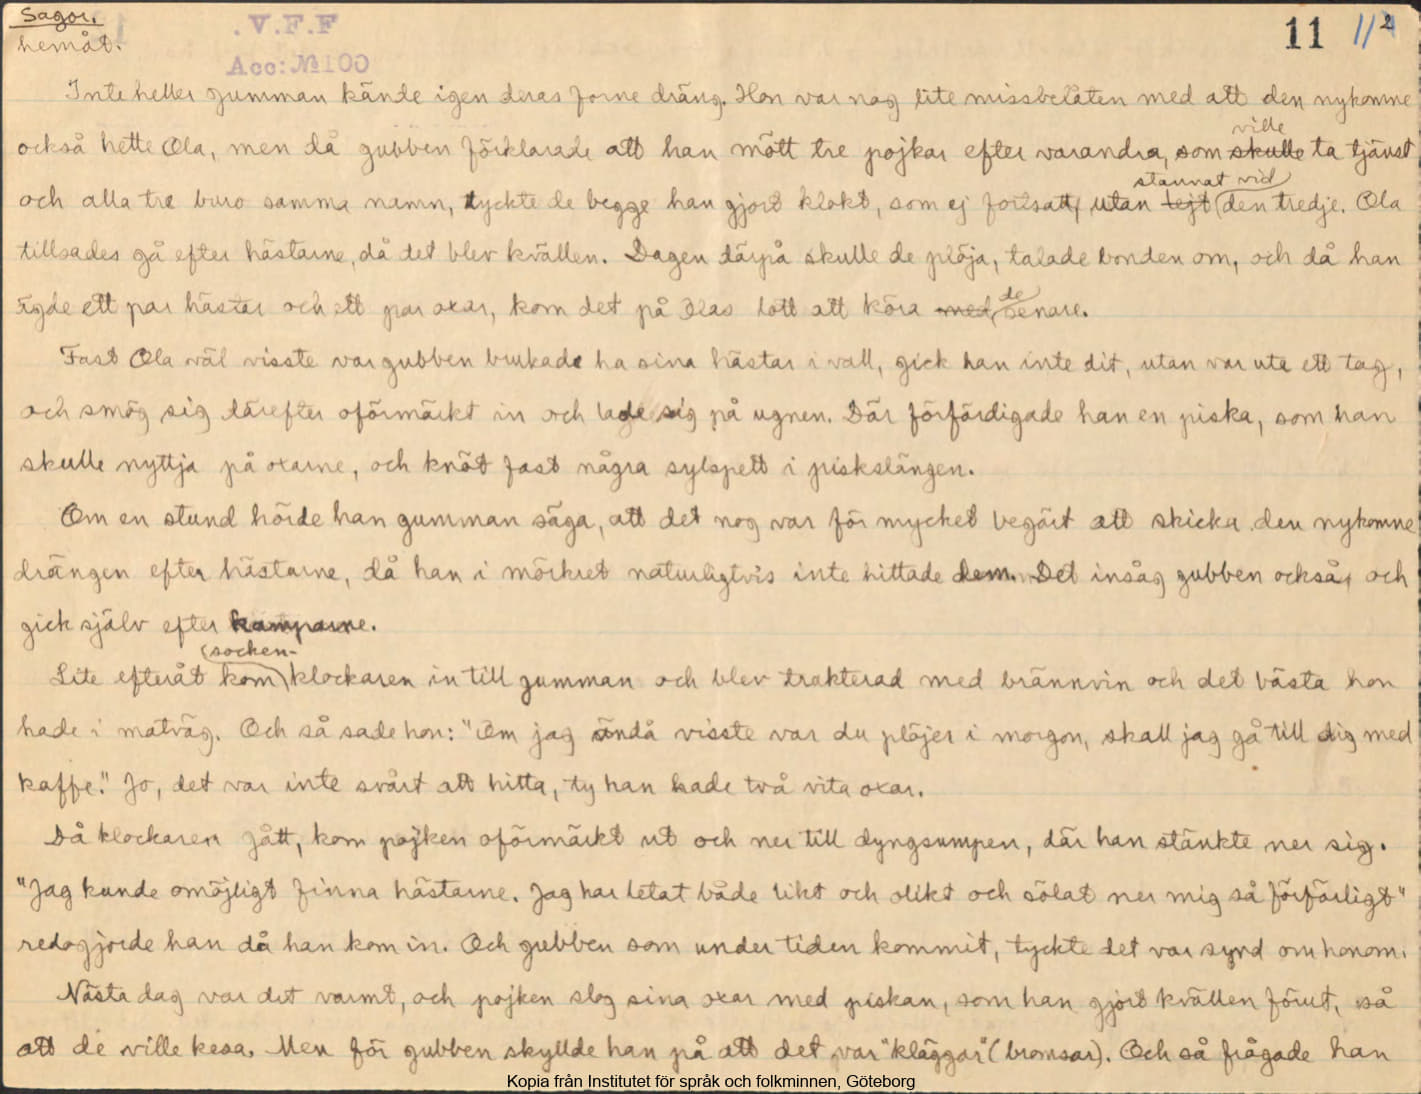 Sagor.
V.F.F.
Acc: № 100
11 112
hemåt.
Inte heller gumman kände igen deras forne dräng. Hon var nog lite missbelåten med att den nykomne
också hette Ola, men då gubben förklarade att han mött tre pojkar efter varandra, som skulle ville ta tjänst
och alla tre buro samma namn, tyckte de begge han gjort klokt, som ej fortsatt, utan lejt stannat vid den tredje. Ola
tillsades gå efter hästarne, då det blev kvällen. Dagen därpå skulle de plöja, talade bonden om, och då han
ägde ett par hästar och ett par oxar, kom det på Olas lott att köra med de senare.
Fast Ola väl visste var gubben brukade ha sina hästar i vall, gick han inte dit, utan var ute ett tag,
och smög sig därefter oförmärkt in och lade sig på ugnen. Där förfärdigade han en piska, som han
skulle nyttja på oxarne, och knöt fast några sylspett i piskslängen.
Om en stund hörde han gumman säga, att det nog var för mycket begärt att skicka den nykomne
drängen efter hästarne, då han i mörkret naturligtvis inte hittade dem. Det insåg gubben också, och
gick själv efter kamparne.
Lite efteråt kom socken-klockaren in till gumman och blev trakterad med brännvin och det bästa hon
hade i matväg. Och så sade hon: "Om jag ändå visste var du plöjer i morgon, skall jag gå till dig med
kaffe." Jo, det var inte svårt att hitta, ty han hade två vita oxar.
Då klockaren gått, kom pojken oförmärkt ut och ner till dyngsumpen, där han stänkte ner sig.
"Jag kunde omöjligt finna hästarne. Jag har letat både likt och olikt och sölat ner mig så förfärligt"
redogjorde han då han kom in. Och gubben som under tiden kommit, tyckte det var synd om honom.
Nästa dag var det varmt, och pojken slog sina oxar med piskan, som han gjort kvällen förut, så
att de ville kesa. Men för gubben skyllde han på att det var "kläggar" (bromsar). Och så frågade han
Kopia från Institutet för språk och folkminnen, Göteborg